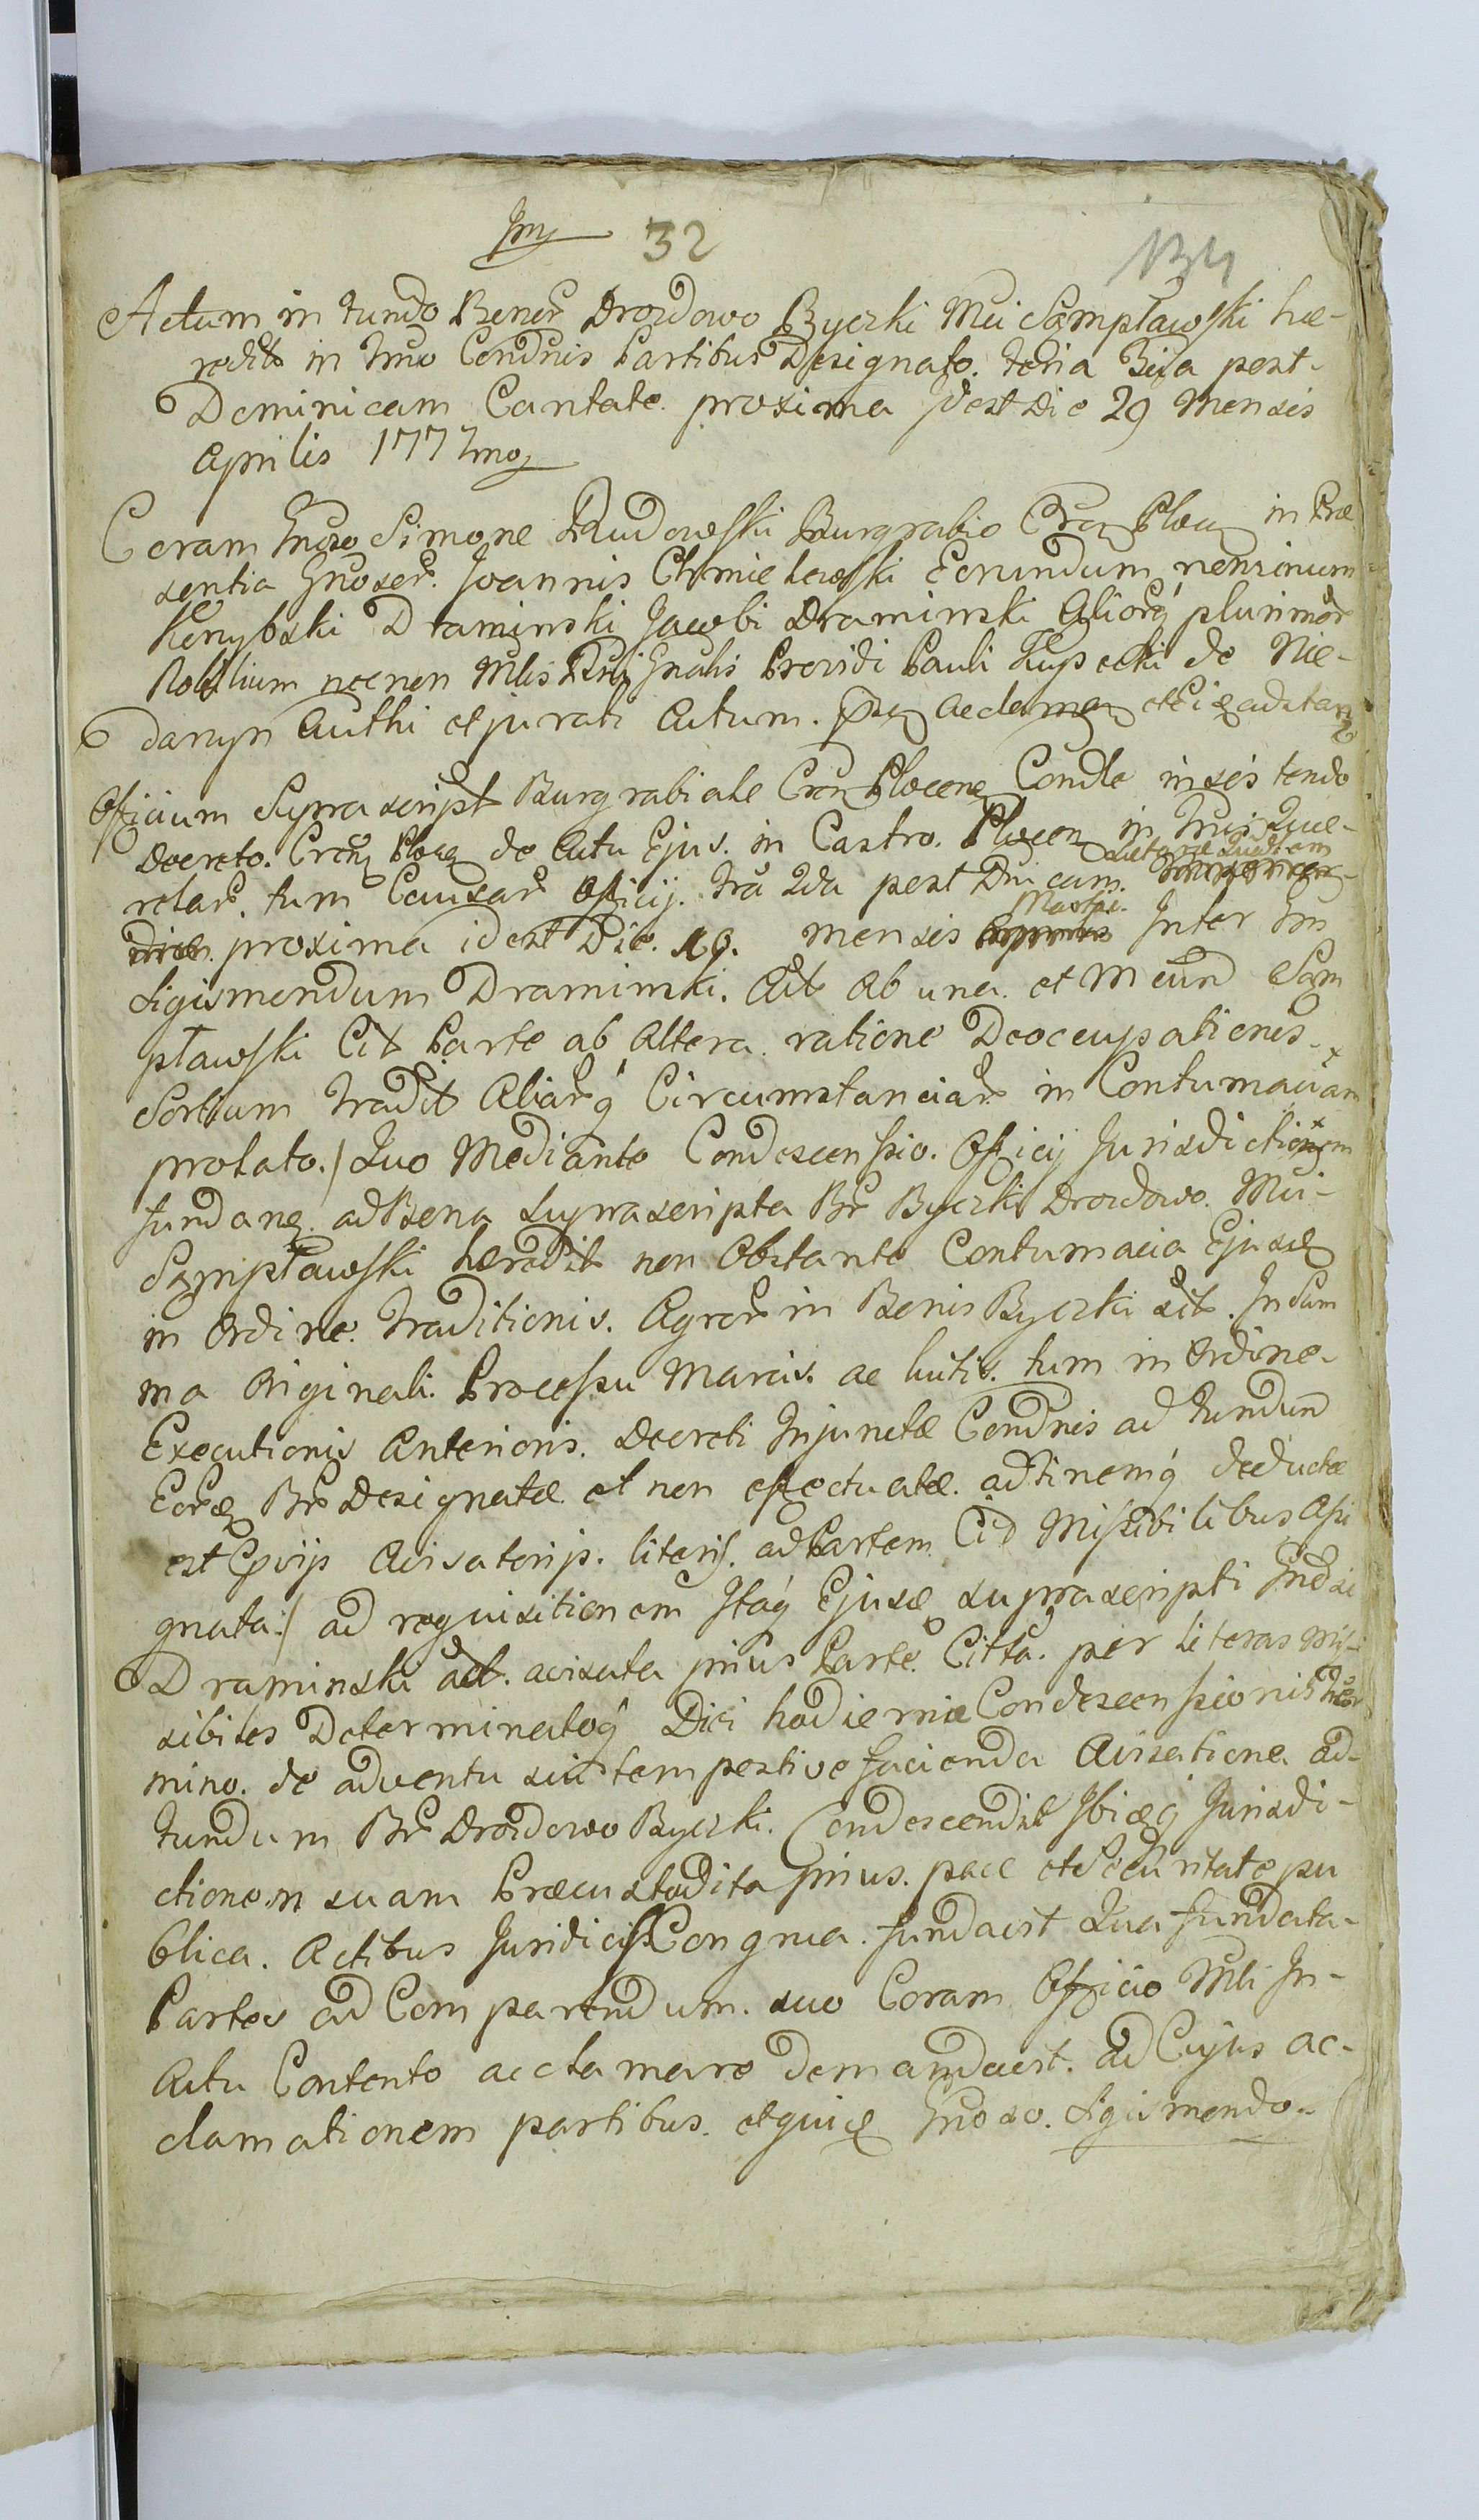 32
Actum in fundo Bonor Drozdowo Byczki Mci Sąmpławski hæ-
redit in Tmno Condnis Partibus Designato. feria 3tia post
Dominicam Cantate proxima idest Die 29 Mensis
Aprilis 1777mo
Coram Gnoso Simone Rudowski Burgrabio Cren Ploc in Præ
sentia Gnosor. Joannis Chmielewski Ecrundum
Draminski Jacobi Draminski Aliorq plurimor
Nobilium necnon Mlis Rni Gnalis Providi Pauli de Nie-
danyn Authi et jurati Actum.
Officium Suprascript Burgrabiale Cren Plocen Condle insistendo
Decreto. Cren Ploc de Actu Ejus. in Castro. Plocen in Tmis Que-
relar. tum Causar Officij. fra 2da post Dnicam. Lætare
proxima idest Die. 19. mensis Martii. Inter Gm
Sigismondum Draminski. Act Ab una. et M eund Sąm
pławski Cit Parte ab Altera. ratione Deoccupationis
Sortium tradit Aliarq Circumstanciar in Contumaciam
prolato./ Quo Mediante Condescensio. Officij Jurisdictionem
fundan. ad Bona suprascripta Br Byczki Drozdowo. Mci-
Sąmpławski hæredit non Obstante Contumacia Ejusd
in Ordine. traditionis. Agror in Bonis Byczki sit. In Sum
ma Originali. Processu Marcis. ac lucris. tum in Ordine-
Executionis Anterioris. Decreti Injunctæ Condnis ad fundum
Eor Br Designatæ et non effectuatæ. adtinenq deductæ
est Copijs Avisatorijs. literis. ad Partem Citt Missibilibus Assi
gnata:/ ad requisitionem Itaq Ejusd suprascripti Gnosi
Draminski act. avisata prius Parte. Citta. per literas mis-
sibiles Determinatoq Diei hodiernæ Condescensionis ter
mino. de adventu sui tempestive facienda Avisatione. ad
fundum Br Drozdowo Byczki. Condescendit Ibiq Jurisdi-
ctionem suam Præcustodita prius. pace et Securitate pu
blica. Actibus Juridicis Congrua. fundavit Qua fundata-
Partes ad Comparendum. suo Coram Officio Mli In-
Actu Contento acclamare demandavit. ad Cujus ac-
clamationem partibus. et quid Gnoso. Sigismondo-